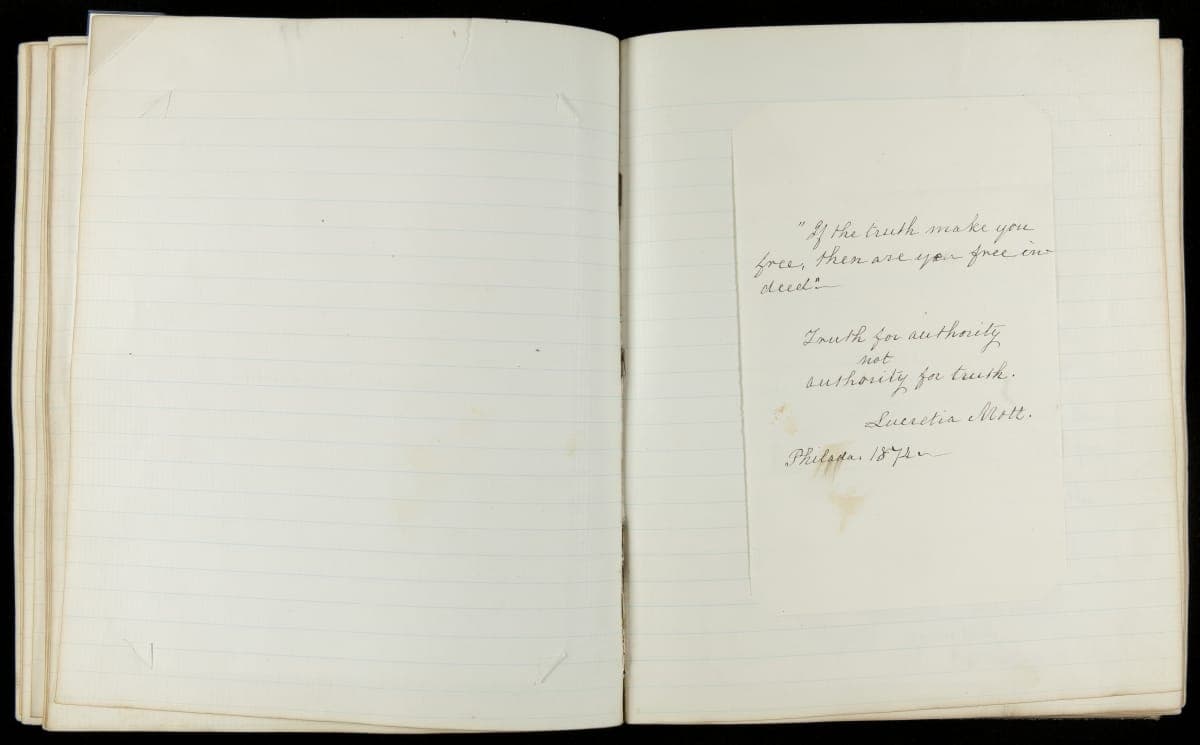 "If the truth make you
free, then are you free in-
deed"—
Truth for authority
not
authority for truth.
Lucretia Mott.
Philada. 1874—